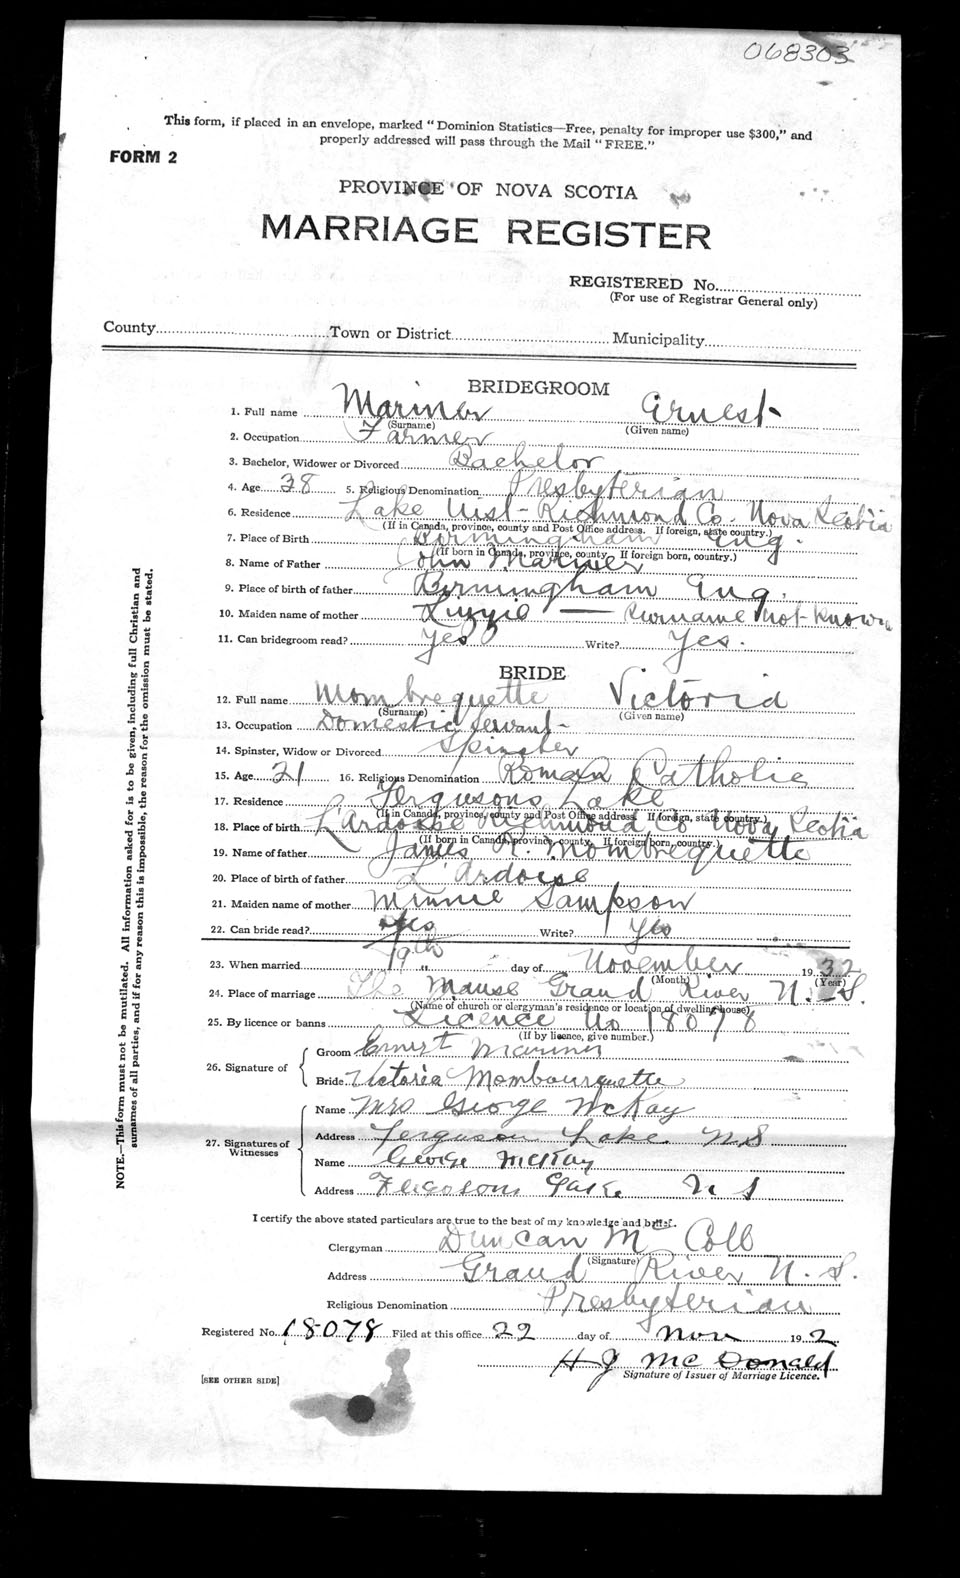 068303
This form, if placed in an envelope, marked "Dominion Statistics—Free, penalty for improper use $300," and
properly addressed will pass through the Mail "FREE."
FORM 2
PROVINCE OF NOVA SCOTIA
MARRIAGE REGISTER
REGISTERED No.
(For use of Registrar General only)
County Town or District Municipality
BRIDEGROOM
1. Full name Mariner Ernest
(Surname) (Given name)
2. Occupation Farmer
3. Bachelor, Widower or Divorced Bachelor
4. Age 38 5. Religious Denomination Presbyterian
6. Residence Lake Uist - Richmond Co. Nova Scotia
(If in Canada, province, county and Post Office address. If foreign, state country.)
7. Place of Birth Birmingham Eng.
(If born in Canada, province, county. If foreign born, country.)
8. Name of Father John Mariner
9. Place of birth of father Birmingham Eng.
10. Maiden name of mother Lizzie — Surname not known
11. Can bridegroom read? Yes Write? Yes.
BRIDE
12. Full name Mombrequette Victoria
(Surname) (Given name)
13. Occupation Domestic Servant
14. Spinster, Widow or Divorced Spinster
15. Age 21 16. Religious Denomination Roman Catholic
17. Residence Fergusons Lake
(If in Canada, province, county and Post Office address. If foreign, state country.)
18. Place of birth L'Ardoise Richmond Co Nova Scotia
(If born in Canada, province, county. If foreign born, country.)
19. Name of father James R. Mombrequette
20. Place of birth of father L'Ardoise
21. Maiden name of mother Minnie Sampson
22. Can bride read? Yes Write? Yes
23. When married 19th day of November 1932
(Month) (Year)
24. Place of marriage The Manse Grand River N.S.
(Name of church or clergyman's residence or location of dwelling house)
25. By licence or banns Licence No 18078
(If by licence, give number.)
26. Signature of
Groom Ernest Mariner
Bride Victoria Mombourquette
27. Signatures of Witnesses
Name Mrs George McKay
Address Ferguson Lake N S
Name George McKay
Address Fergosons Lake N S
I certify the above stated particulars are true to the best of my knowledge and belief.
Clergyman Duncan Mc Coll
(Signature)
Address Grand River N.S.
Religious Denomination Presbyterian
Registered No. 18078 Filed at this office 22 day of Nov 19 2
H J McDonald
Signature of Issuer of Marriage Licence.
[SEE OTHER SIDE]
NOTE.—This form must not be mutilated. All information asked for is to be given, including full Christian and
surnames of all parties, and if for any reason this is impossible, the reason for the omission must be stated.